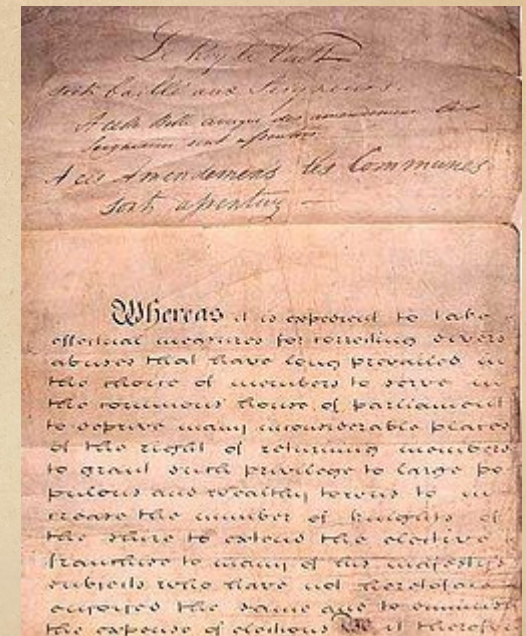 Le Roy le Veult
Soit baillé aux Seigneurs.
A cette Bille avecque des amendemens les
Seigneurs sont assentus.
A ces Amendemens les Communes
sont assentus
Whereas it is expedient to take
effectual measures for correcting divers
abuses that have long prevailed in
the choice of members to serve in
the commons house of parliament
to deprive many inconsiderable places
of the right of returning members
to grant such privilege to large po
pulous and wealthy towns to in
crease the number of knights of
the shire to extend the elective
franchise to many of his majestys
subjects who have not heretofore
enjoyed the same and to diminish
the expense of elections Be it therefore